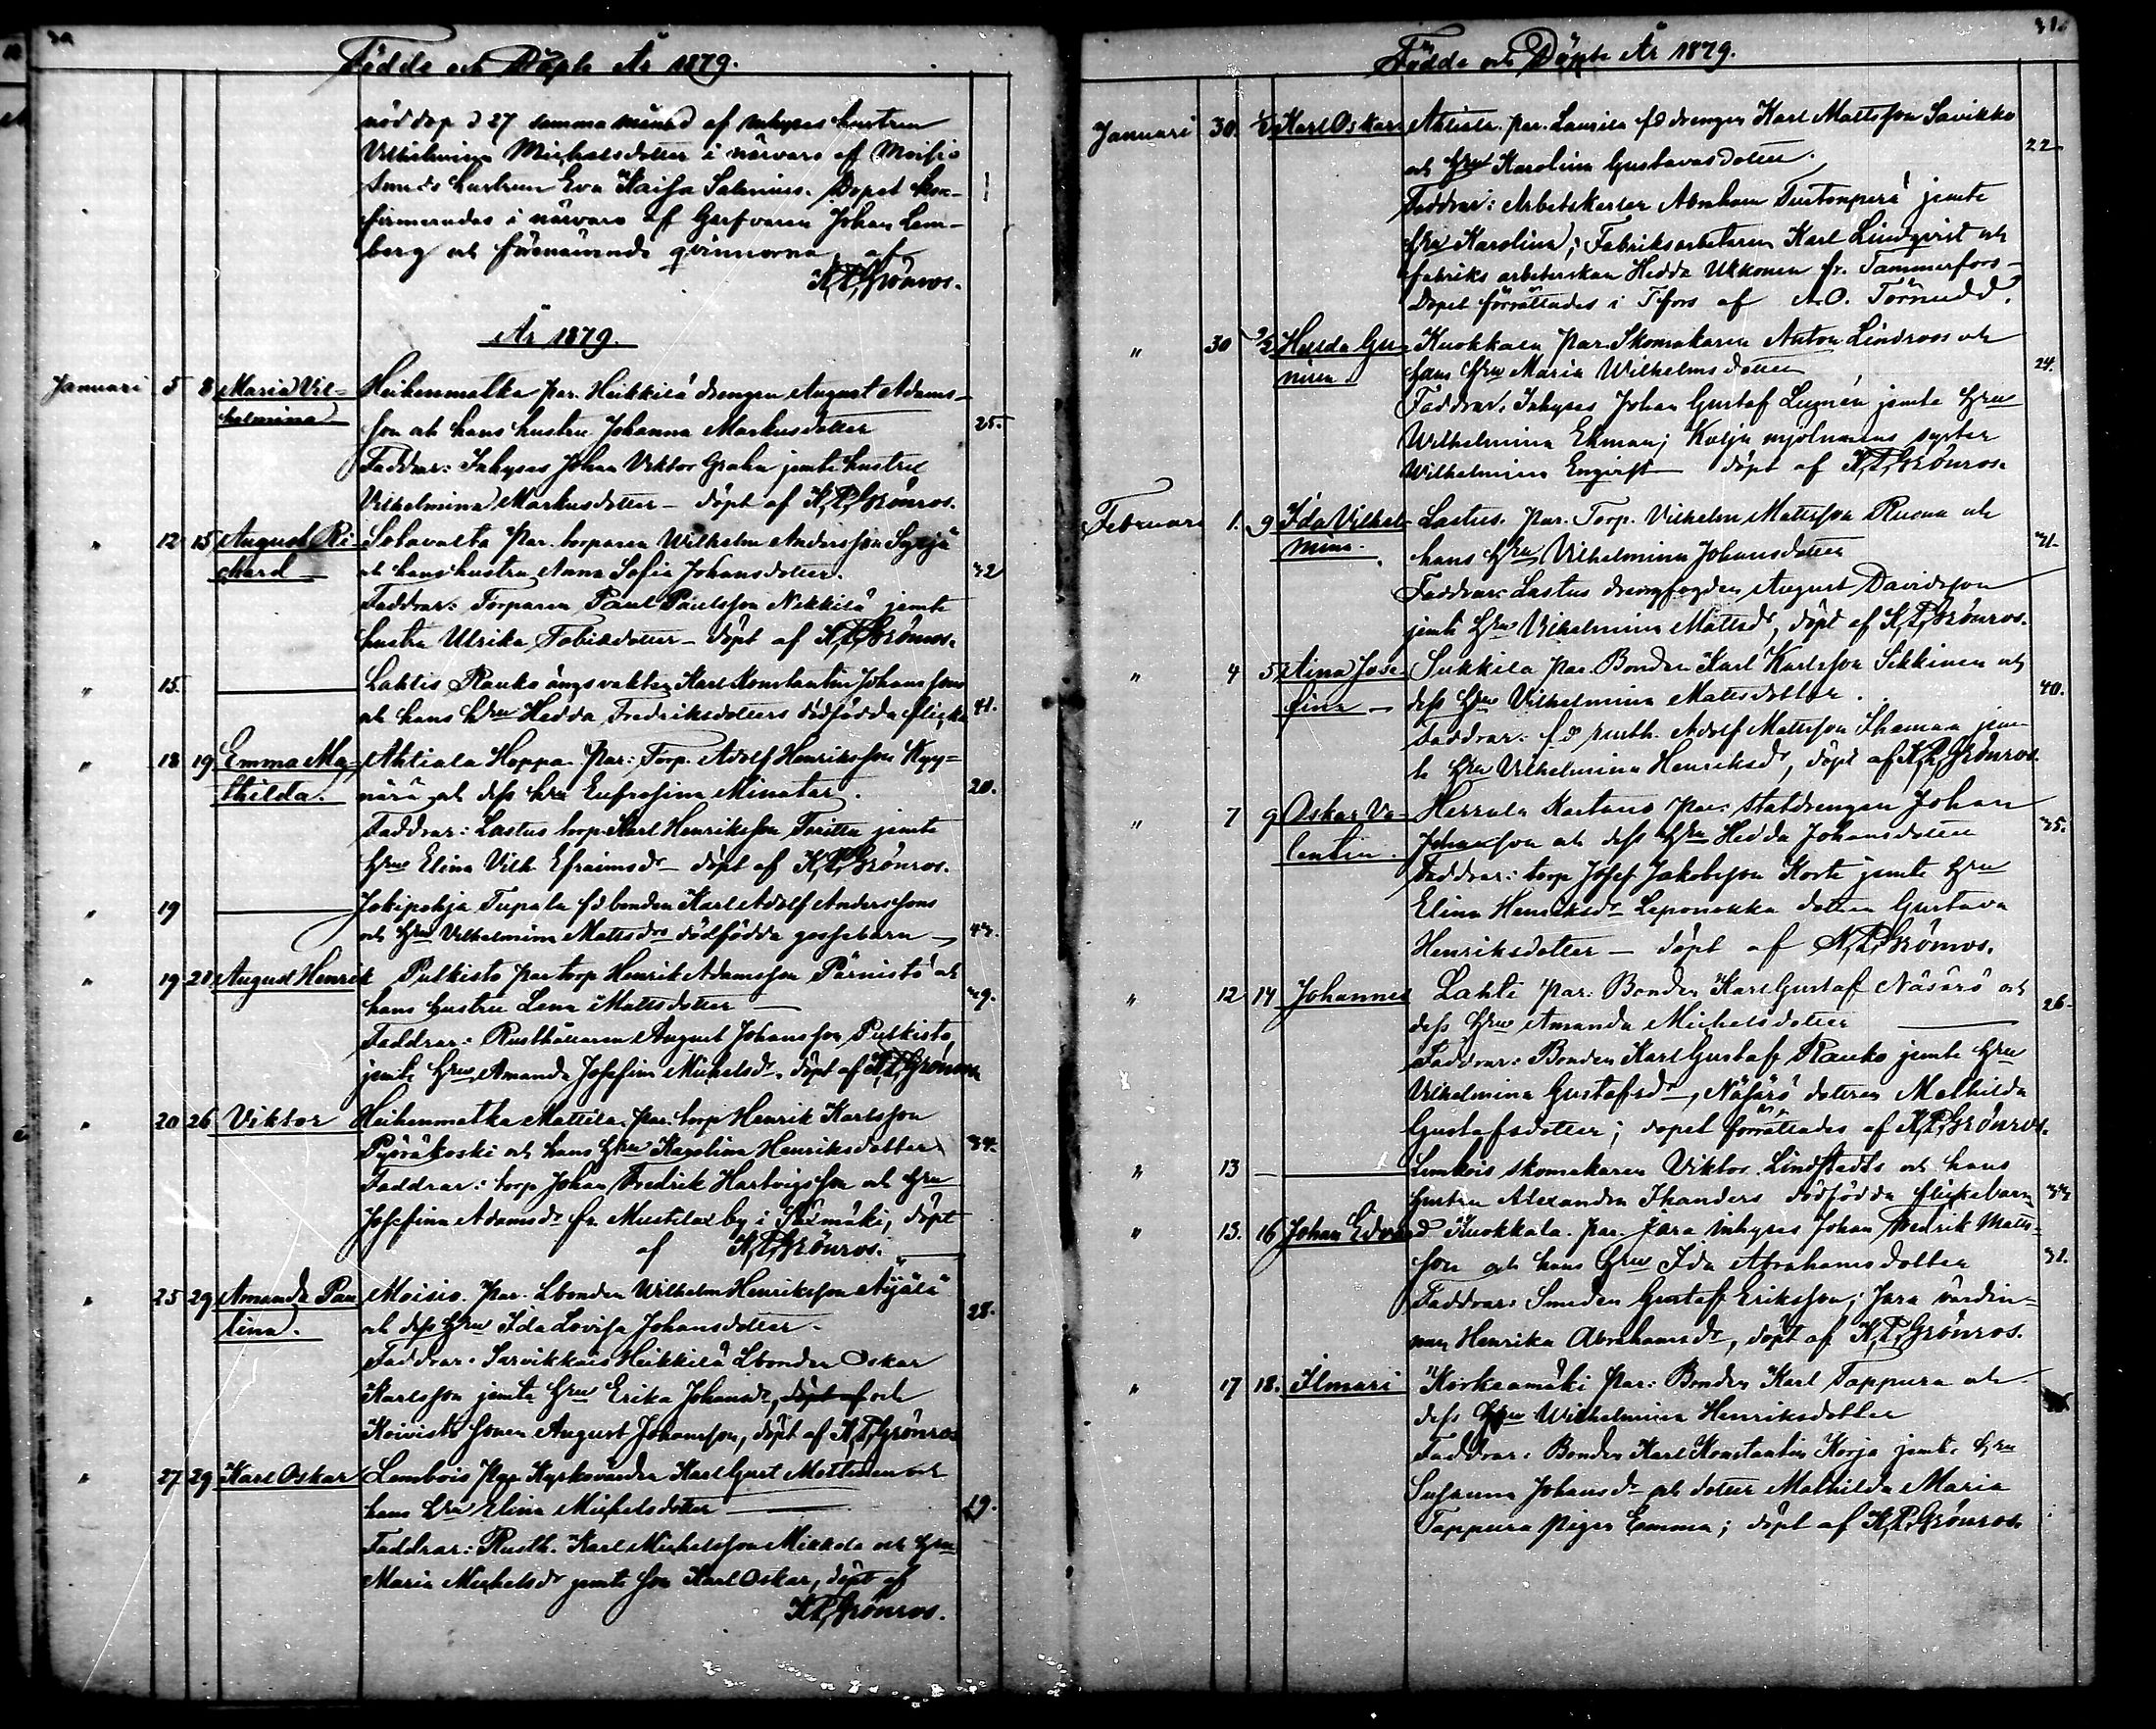 Födde och Döpte År 1879.
nöddöp d 27 samma månad af inhyses hustrun
Vilhelmina Michelsdotter i närvaro af Moisio
smeds hustrun Eva Kaisa Salenius. Dopet kon-
firmerades i närvaro af Gerfvaren Johan Lem-
berg och förenämnde qvinnorna af
K. P. Grönros.
År 1879.
Januari 5 8 Maria Vil- Heikenmatka par. Heikkilä drengen August Adams-
helmina son och hans hustru Johanna Markusdotter 25.
Faddrar: Inhyses Johan Viktor Grahn jemte hustru
Vilhelmina Markusdotter – döpt af K. P. Grönros.
" 12 15 August Ri- Sotavalta Par. torparen Wilhelm Andersson Syrjä
chard och hans hustru Anna Sofia Johansdotter. 32
Faddrar: Torparen Paul Paulsson Nikkilä jemte
hustru Ulrika Tobiasdotter – döpt af K. P. Grönros.
" 15. Lahtis Rauko ängsvakten Karl Konstantin Johanssons
och hans hru Hedda Fredriksdotters dödfödda flicka 41.
" 18 19 Emma Ma- Ahtiala Hoppa Par: Torp. Adolf Henriksson Kyy-
thilda. närä och dess hru Eufrosina Minatar. 20.
Faddrar: Lastus torp. Karl Henriksson Toritta jemte
hru Elina Vilh. Efraimsdr – döpt af K. P. Grönros.
" 19 Jokipohja Tupala fd bonden Karl Adolf Anderssons
och hru Vilhelmina Mattsdrs dödfödda gossebarn 43.
" 19 20 August Henrik Pulkisto par torp Henrik Adamsson Pärnistö och
hans hustru Lena Mattsdotter 39.
Faddrar: Rusthållaren August Johansson Pulkisto,
jemte hru Amanda Josefina Michelsdr. döpt af K. P. Grönros
" 20 26 Viktor Heikenmatka Mattila. par. torp Henrik Karlsson
Pyöräkoski och hans hru Karolina Henriksdotter 34.
Faddrar: torp Johan Fredrik Hartvigsson och hru
Josefina Adamsdr fr. Mustila by i Sääxmäki, döpt
af K. P. Grönros.
" 25 29 Amanda Pau- Moisio. Par. Lbonden Wilhelm Henriksson Äijälä
lina. och dess hru Ida Lovisa Johansdotter. 28.
Faddrar: Sarvikkais Heikkilä Lbonden Oskar
Karlsson jemte hru Erika Johansdr, döpt af och
Koivisto sonen August Johansson, döpt af K. P. Grönros
" 27 29 Karl Oskar Lembois Par Kyrkovärden Karl Gust Mattinen och
hans hru Elina Michelsdotter 29.
Faddrar: Rusth. Karl Michelsson Mikkola och hru
Maria Michelsdr jemte son Karl Oskar, döpt af
K. P. Grönros.
Födde och Döpte År 1879.
Januari 30. Karl Oskar Ahtiala. par. Laurila fd drengen Karl Mattsson Savikko
och hru Karolina Gustavsdotter. 22
Faddrar: Arbetskarlen Abraham Tuotonperä jemte
hru Karolina; Fabriksarbetaren Karl Lindqvist och
fabriks arbeterskan Hedda Ukkonen fr. Tammerfors –
Dopet förrättades i Tfors af A. O. Törnudd.
" 30 2/2 Hulda Gu- Kuokkala Par. Skomakaren Anton Lindroos och
hans hru Maria Wilhelmsdotter 24.
Faddrar, Inhyses Johan Gustaf Lumén jemte hru
Wilhelmina Ekman; Kulju mjölnarens syster
Wilhelmina Engvist – döpt af K. P. Grönros.
Februari 1. 9 Ida Vilhel- Lastus. Par. Torp. Vilhelm Mattsson Ruona och
mina. hans hru Vilhelmina Johansdotter 31.
Faddrar: Lastus drengfogden August Davidsson
jemte hru Vilhelmina Mattsdr, döpt af K. P. Grönros.
" 4 5 Aina Jose- Sukkila par. Bonden Karl Karlsson Sikkinen och
fina – dess hru Vilhelmina Mattsdotter. 40.
Faddrar: fd rusth. Adolf Mattsson Ihaman jem-
te hru Vilhelmina Henriksdr, döpt af K. P. Grönros.
" 7 9 Oskar Va- Herrala Kartano Par: Statdrengen Johan
lentin. Johansson och dess hru Hedda Johansdotter 35.
Faddrar: torp Josef Jakobsson Korte jemte hru
Elina Henriksdr Leponokka dotter Gustava
Henriksdotter – döpt af K. P. Grönros.
" 12 14 Johannes Lahti Par: Bonden Karl Gustaf Näsärö och
dess hru Amanda Michelsdotter 26.
Faddrar: Bonden Karl Gustaf Rauko jemte hru
Vilhelmina Gustafsdr, Näsärö dottren Mathilda
Gustafsdotter; dopet förrättades af K. P. Grönros.
" 13 Lembois skomakaren Viktor Lindstedts och hans
hustru Alexandra Ihanders dödfödda flickebarn 33
" 13. 16 Johan Edvard Kuokkala. par. Jara inhyses Johan Fredrik Matts-
son och hans hru Ida Abrahamsdotter 31.
Faddrar: Smeden Gustaf Eriksson; Jara värdin-
nan Henrika Abrahamsdr, döpt af K. P. Grönros.
" 17 18. Ilmari Korkeamäki Par: Bonden Karl Tappura och
dess hru Wilhelmina Henriksdotter
Faddrar: Bonden Karl Konstantin Korja jemte hru
Susanna Johansdr och dotter Mathilda Maria
Tappura pigan Emma; döpt af K. P. Grönros.